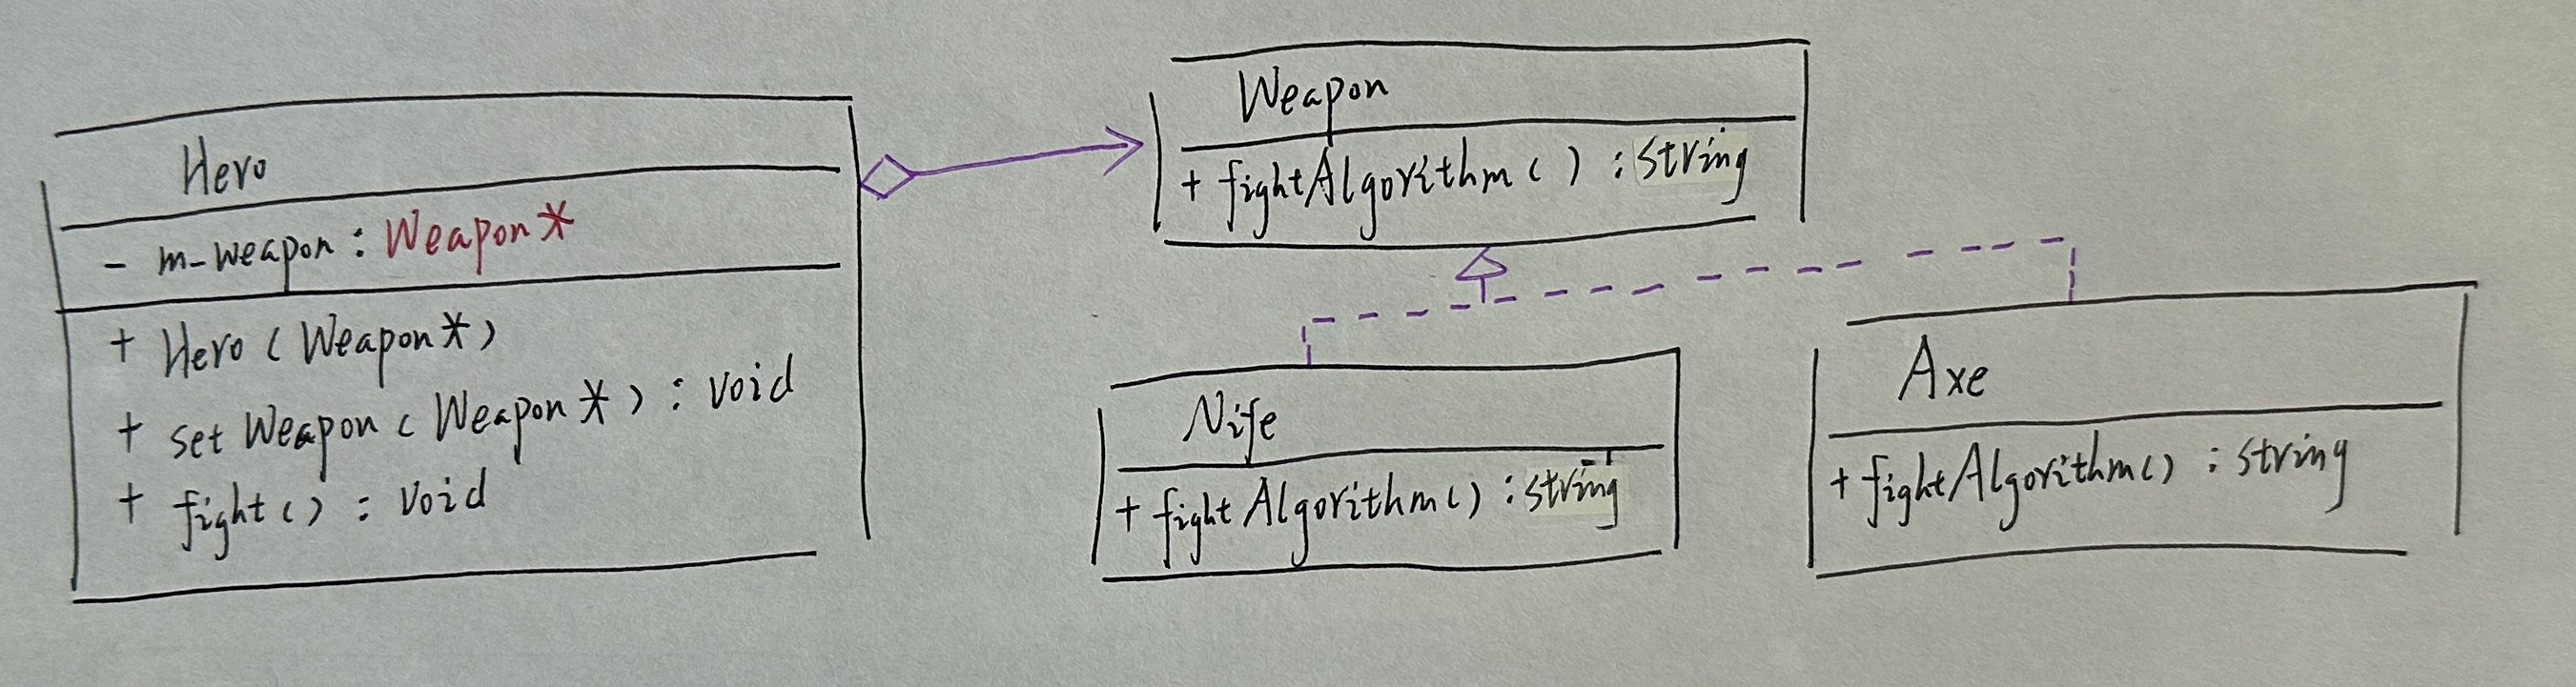 Hero
- m-weapon : Weapon*
+ Hero (Weapon*)
+ set Weapon (Weapon*) : void
+ fight() : void
Weapon
+ fightAlgorithm ( ) : string
Nife
+ fight Algorithm() : string
Axe
+ fightAlgorithm() : string